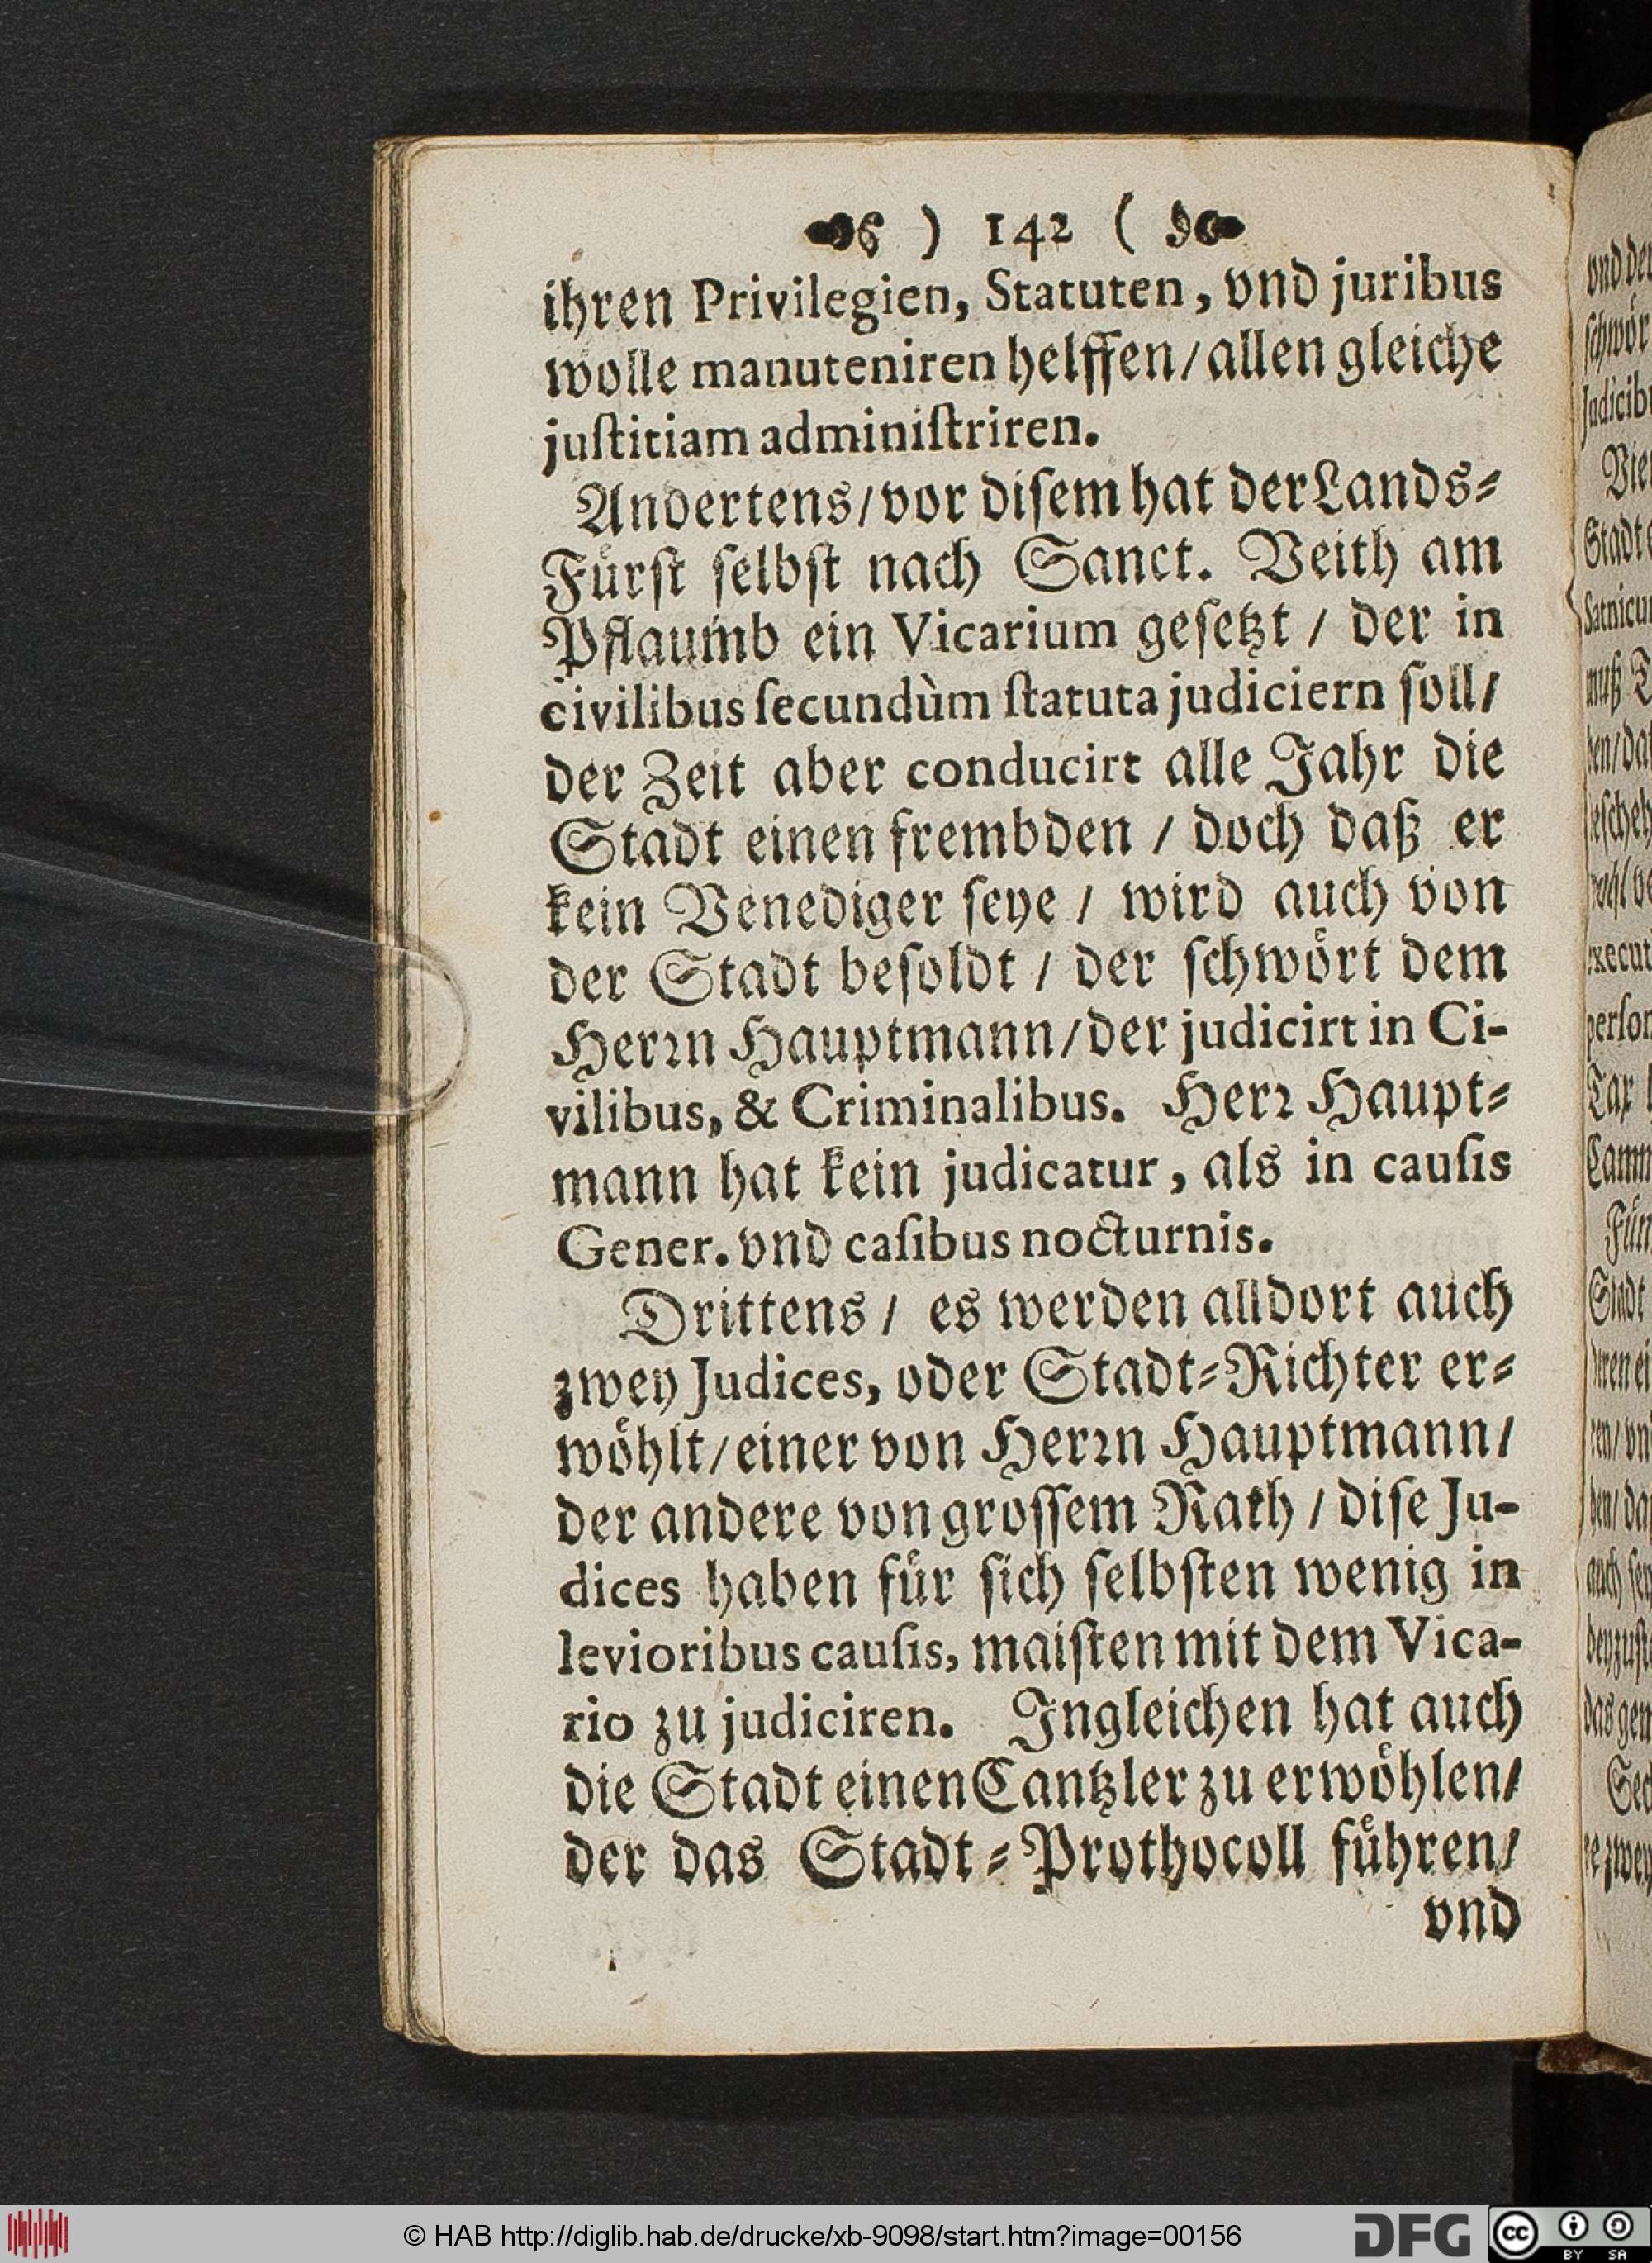 ) 142 (
ihren Privilegien, Statuten, vnd juribus
wolle manuteniren helffen/allen gleiche
juſtitiam adminiſtriren.
Andertens/vor diſem hat der Lands⸗
Fuͤrſt ſelbſt nach Sanct. Veith am
Pflaumb ein Vicarium geſetzt / der in
civilibus ſecundùm ſtatuta judiciern ſoll/
der Zeit aber conducirt alle Jahr die
Stadt einen frembden / doch daß er
kein Venediger ſeye / wird auch von
der Stadt beſoldt / der ſchwoͤrt dem
Herꝛn Hauptmann/der judicirt in Ci-
vilibus, & Criminalibus. Herꝛ Haupt⸗
mann hat kein judicatur, als in cauſis
Gener. vnd caſibus nocturnis.
Drittens / es werden alldort auch
zwey Judices, oder Stadt⸗Richter er⸗
woͤhlt/einer von Herꝛn Hauptmann/
der andere von groſſem Rath / diſe Ju-
dices haben fuͤr ſich ſelbſten wenig in
levioribus cauſis, maiſten mit dem Vica-
rio zu judiciren. Ingleichen hat auch
die Stadt einen Cantzler zu erwoͤhlen/
der das Stadt⸗Prothocoll fuͤhren/
vnd
© HAB http://diglib.hab.de/drucke/xb-9098/start.htm?image=00156
DFG
cc
BY SA